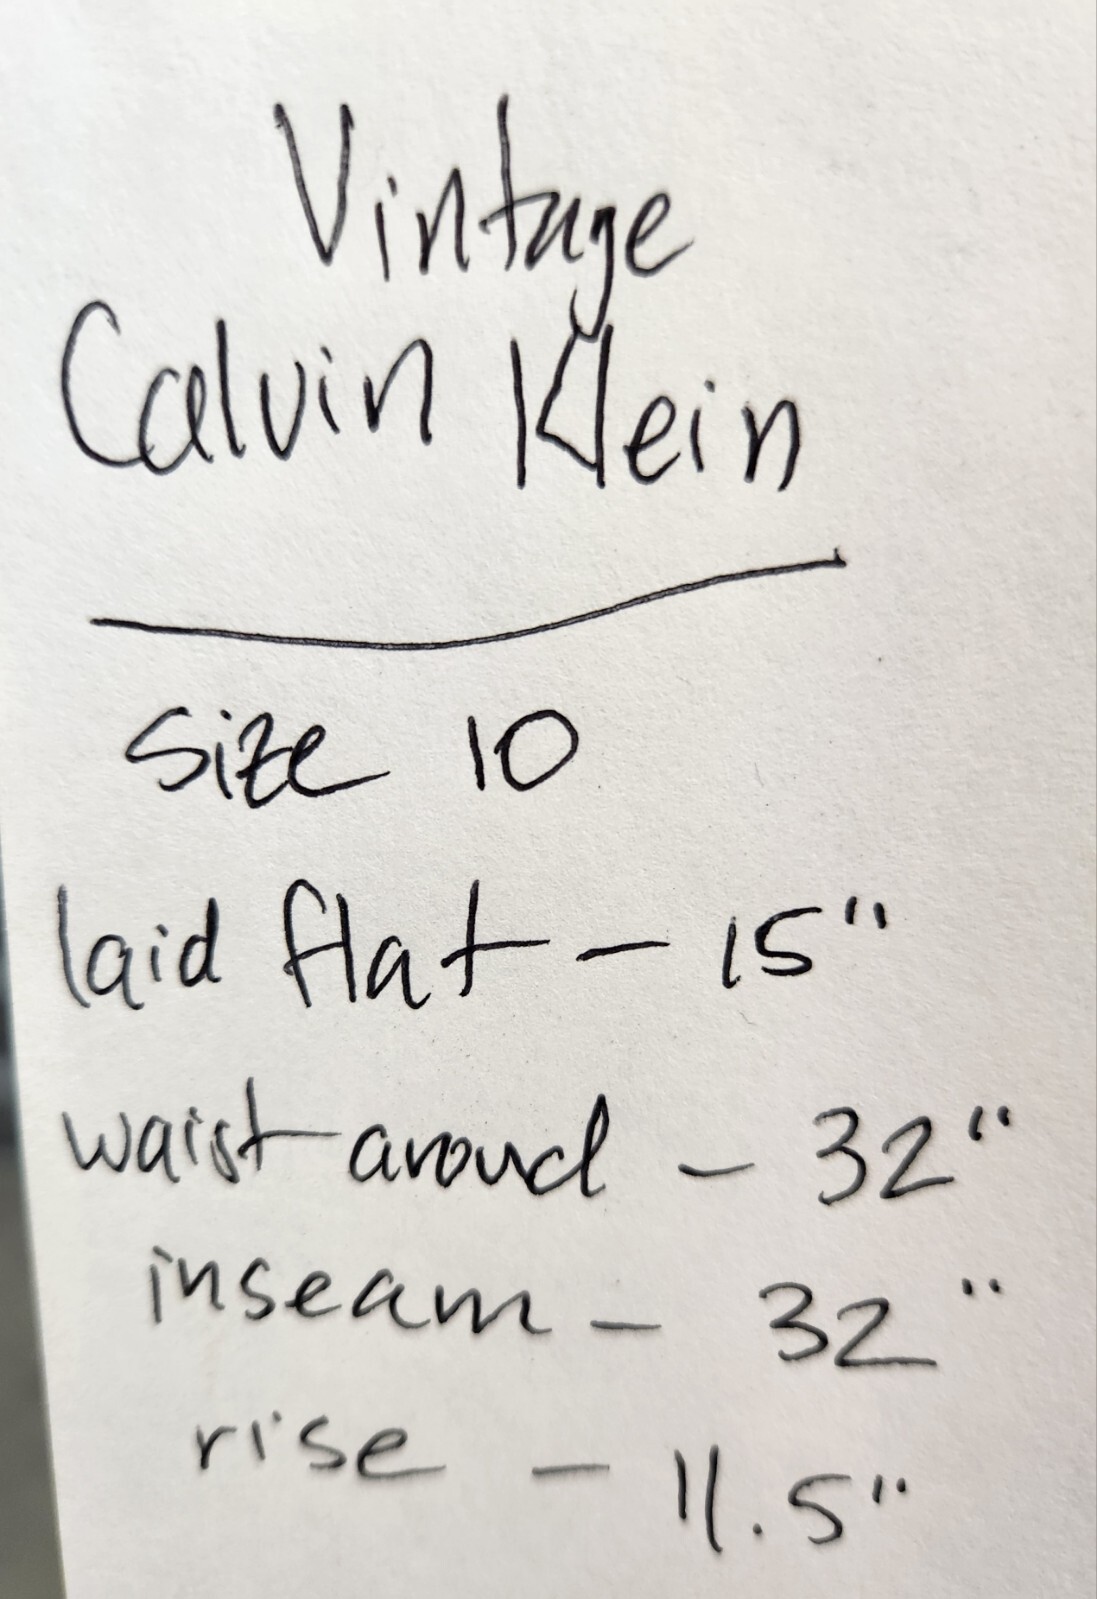 Vintage
Calvin Klein
Size 10
laid flat - 15"
waist around - 32"
inseam - 32"
rise - 11.5"